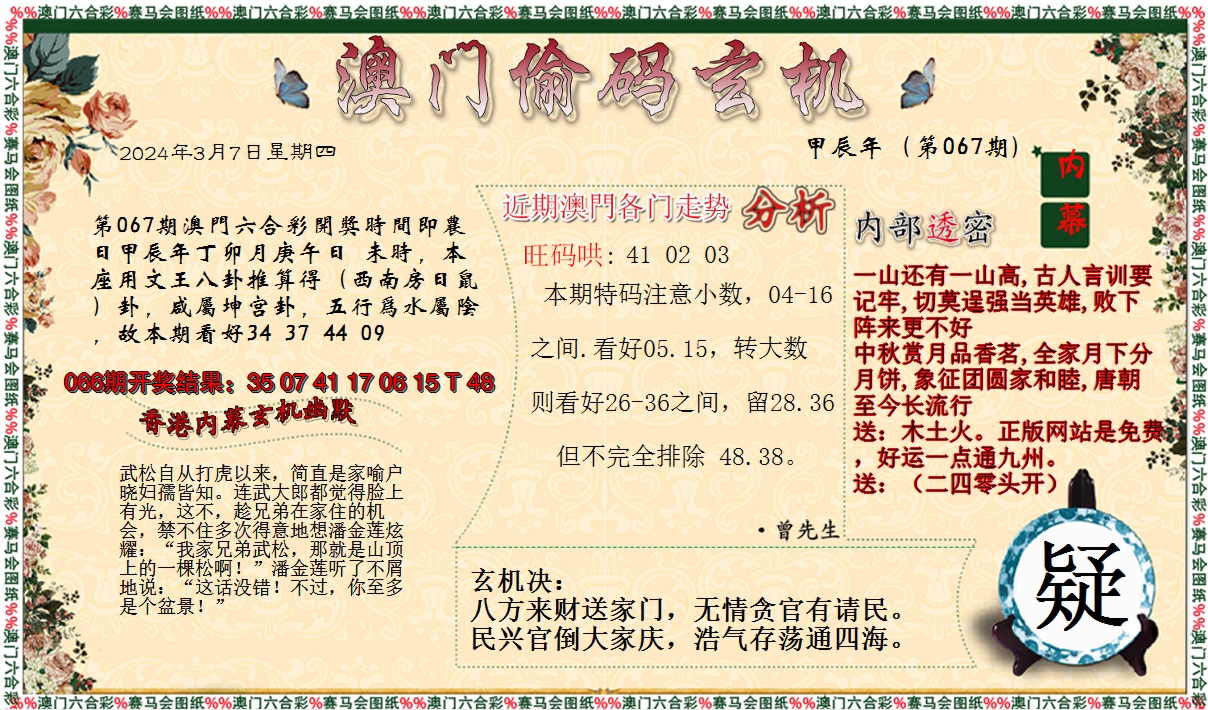 %%澳门六合彩%赛马会图纸%%澳门六合彩%赛马会图纸%%澳门六合彩%赛马会图纸%%澳门六合彩%赛马会图纸%%澳门六合彩%赛马会图纸%%澳门六合彩%赛马会图纸%%
澳门偷码玄机
2024年3月7日星期四
甲辰年（第067期）
内幕
第067期澳門六合彩開獎時間即農
日甲辰年丁卯月庚午日 未時，本
座用文王八卦推算得（西南房日鼠
）卦，咸屬坤宫卦，五行爲水屬陰
，故本期看好34 37 44 09
066期开奖结果：35 07 41 17 06 15 T 48
香港内幕玄机幽默
武松自从打虎以来，简直是家喻户
晓妇孺皆知。连武大郎都觉得脸上
有光，这不，趁兄弟在家住的机
会，禁不住多次得意地想潘金莲炫
耀：“我家兄弟武松，那就是山顶
上的一棵松啊！”潘金莲听了不屑
地说：“这话没错！不过，你至多
是个盆景！”
近期澳門各门走势 分析
旺码哄: 41 02 03
本期特码注意小数，04-16
之间.看好05.15，转大数
则看好26-36之间，留28.36
但不完全排除 48.38。
·曾先生
内部透密
一山还有一山高,古人言训要
记牢,切莫逞强当英雄,败下
阵来更不好
中秋赏月品香茗,全家月下分
月饼,象征团圆家和睦,唐朝
至今长流行
送：木土火。正版网站是免费
，好运一点通九州。
送：（二四零头开）
玄机决：
八方来财送家门，无情贪官有请民。
民兴官倒大家庆，浩气存荡通四海。
疑
%%澳门六合彩%赛马会图纸%%澳门六合彩%赛马会图纸%%澳门六合彩%赛马会图纸%%澳门六合彩%赛马会图纸%%澳门六合彩%赛马会图纸%%澳门六合彩%赛马会图纸%%